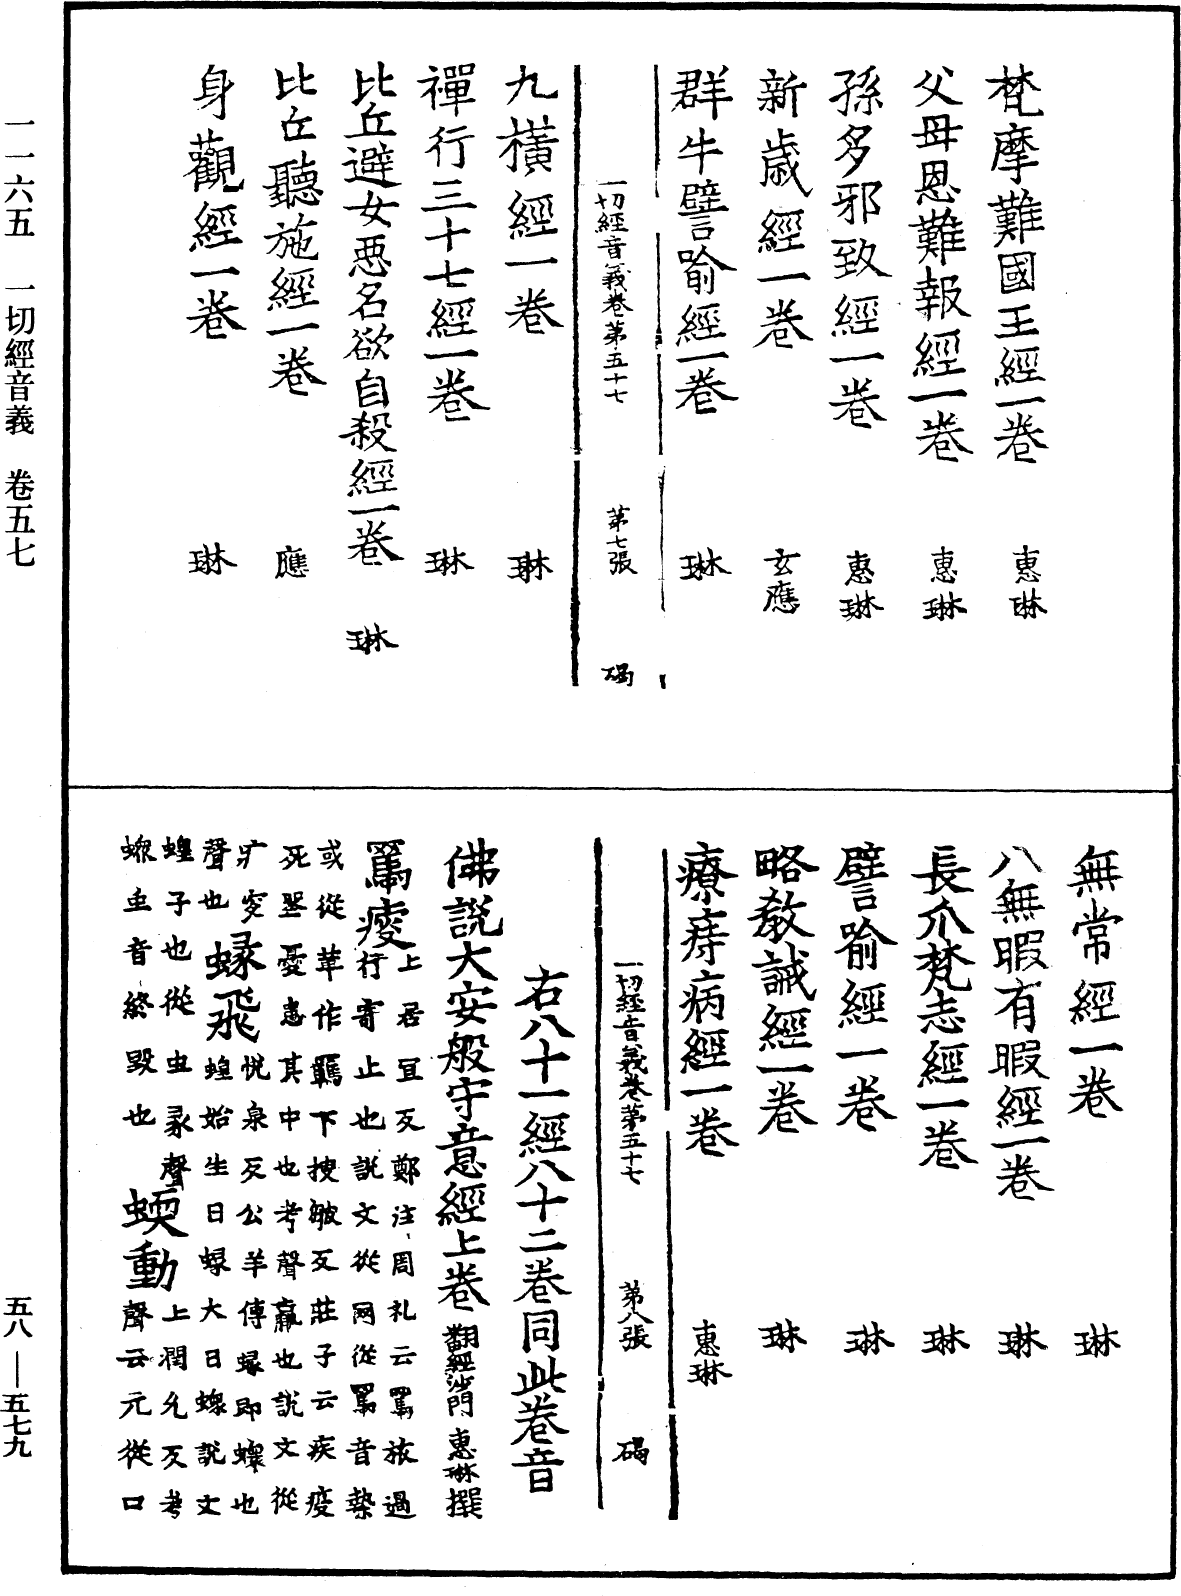 一一六五　一切經音義　卷五七
梵摩難國王經一卷　惠琳
父母恩難報經一卷　惠琳
孫多邪致經一卷　惠琳
新歲經一卷　玄應
群牛譬喻經一卷　琳
一切經音義卷第五十七　第七張　碣
九橫經一卷　琳
禪行三十七經一卷　琳
比丘避女惡名欲自殺經一卷　琳
比丘聽施經一卷　應
身觀經一卷　琳
無常經一卷　琳
八無暇有暇經一卷　琳
長爪梵志經一卷　琳
譬喻經一卷　琳
略教誡經一卷　琳
療痔病經一卷　惠琳
一切經音義卷第五十七　第八張　碣
右八十一經八十二卷同此卷音
佛說大安般守意經上卷　翻經沙門　惠琳撰
羇㾮上居宜反鄭注周礼云羇旅過
行寄止也說文從网從馽音縶
或從革作羈下搜皺反莊子云疾疫
死喪憂患其中也考聲羸也說文從
疒叜　蝝飛悅泉反公羊傳蝝即蠑也
聲也　蝗始生曰蝝大曰蠑說文
蝗子也從虫彖聲　蝡動上潤允反考
蠑虫音終毀也　聲云元從口
五八—五七九